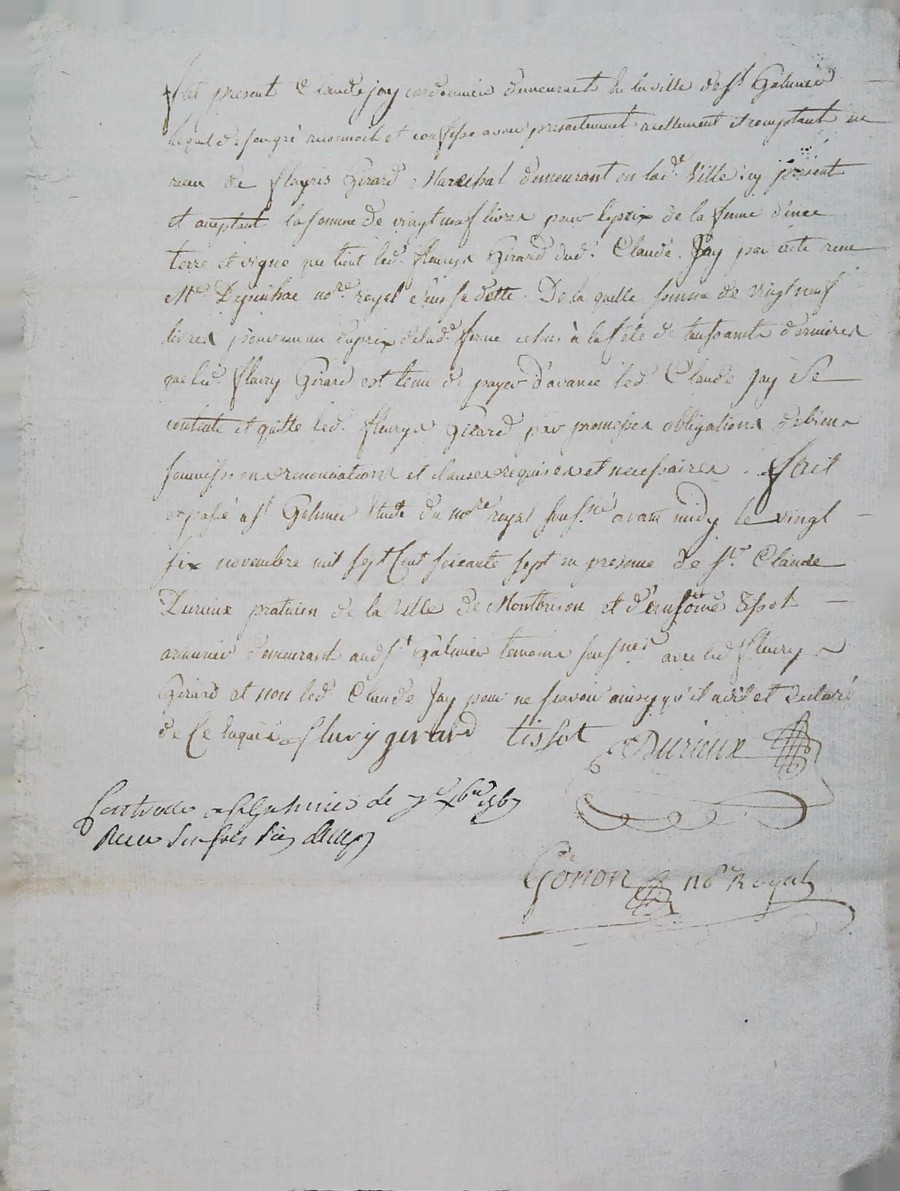 fut présent Claude Jay cordonnier demeurant en la ville de st Galmier
lequel de son gré reconnoit et confesse avoir présentement reellement et comptant
receu de fleurys Girard Marechal demeurant en lad.e Ville icy présent
et aceptant la somme de vingt neuf livres pour le prix de la ferme d'une
terre et vigne que tient led. fleurys Girard dud. Claude Jay par acte receu
Me no.re royal sa datte. De la quelle somme de vingt neuf
livres du prix de lad. ferme à la fete de toussaints derniere
que led. fleury Girard est tenu de payer d'avance led. Claude Jay se
contente et quitte led. fleurys Girard par promesses obligations de biens
soumissions renonciations et clauses requises et necessaires . fait
et passé a st Galmier Etude du no.re royal sous.né avant midy le vingt
six novembre mil sept Cent soixante sept en presence de sr. Claude
Durieux praticien de la Ville de Montbrison et d'antoine tissot
armurier demeurant aud. st Galmier temoins sous.nés avec led. fleurys
Girard et non led. Claude Jay pour ne sçavoir ainsy qu'il a dit et declaré
de Ce enquis fleury girard tissot Durieux
Controllé a st Galmier le 1767
Receu
Gonon no.re Royal